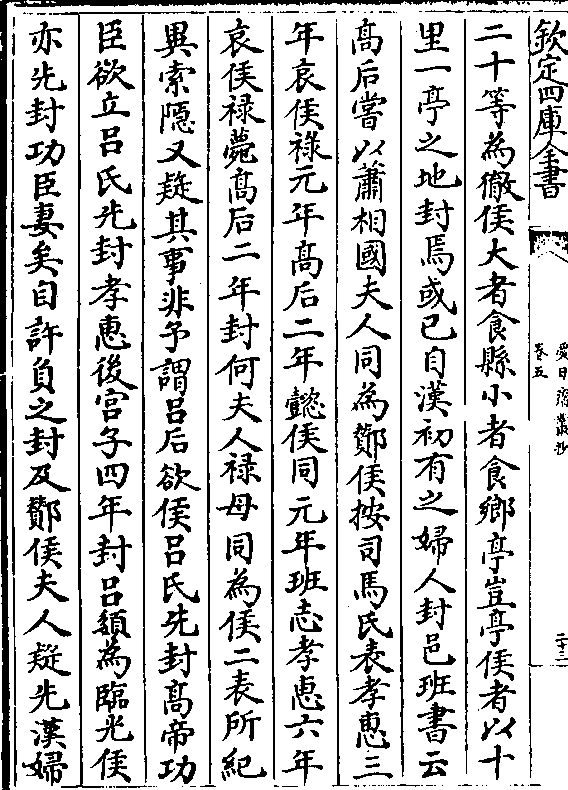 欽定四庫全書
愛日齋叢抄
卷五
二十三
二十等為徹侯大者食縣小者食鄉亭豈亭侯者以十
里一亭之地封焉或已自漢初有之婦人封邑班書云
髙后嘗以蕭相國夫人同為酇侯按司馬氏表孝惠三
年哀侯祿元年髙后二年懿侯同元年班志孝惠六年
哀侯禄薨髙后二年封何夫人禄母同為侯二表所紀
異索隱又疑其事非予謂吕后欲侯吕氏先封髙帝功
臣欲立吕氏先封孝惠後宫子四年封吕嬃為臨光侯
亦先封功臣妻矣自許負之封及酇侯夫人疑先漢婦